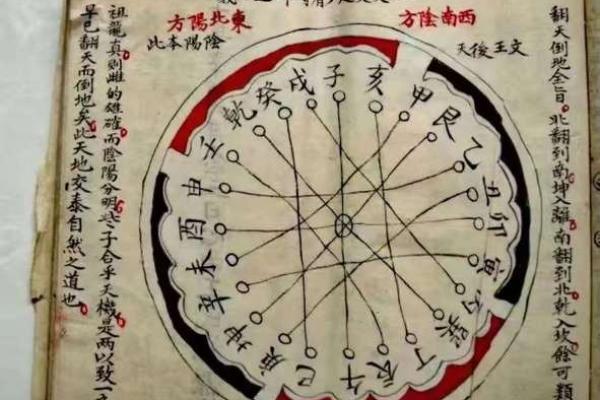 翻天倒地全旨北翻到南坤入離南翻到北乾入坎餘可類
西南陰方
文王後天
東北陽方
陰陽本此
子
亥
甲
艮
乙
丑
卯
寅
丙
巽
丁
辰
午
巳
坤
辛
未
酉
申
壬
乾
癸
戌
祖龍真則雌的雄確而陰陽分明子合乎天機是兩以致一
早已翻天而倒地矣此天地交泰自然之道也